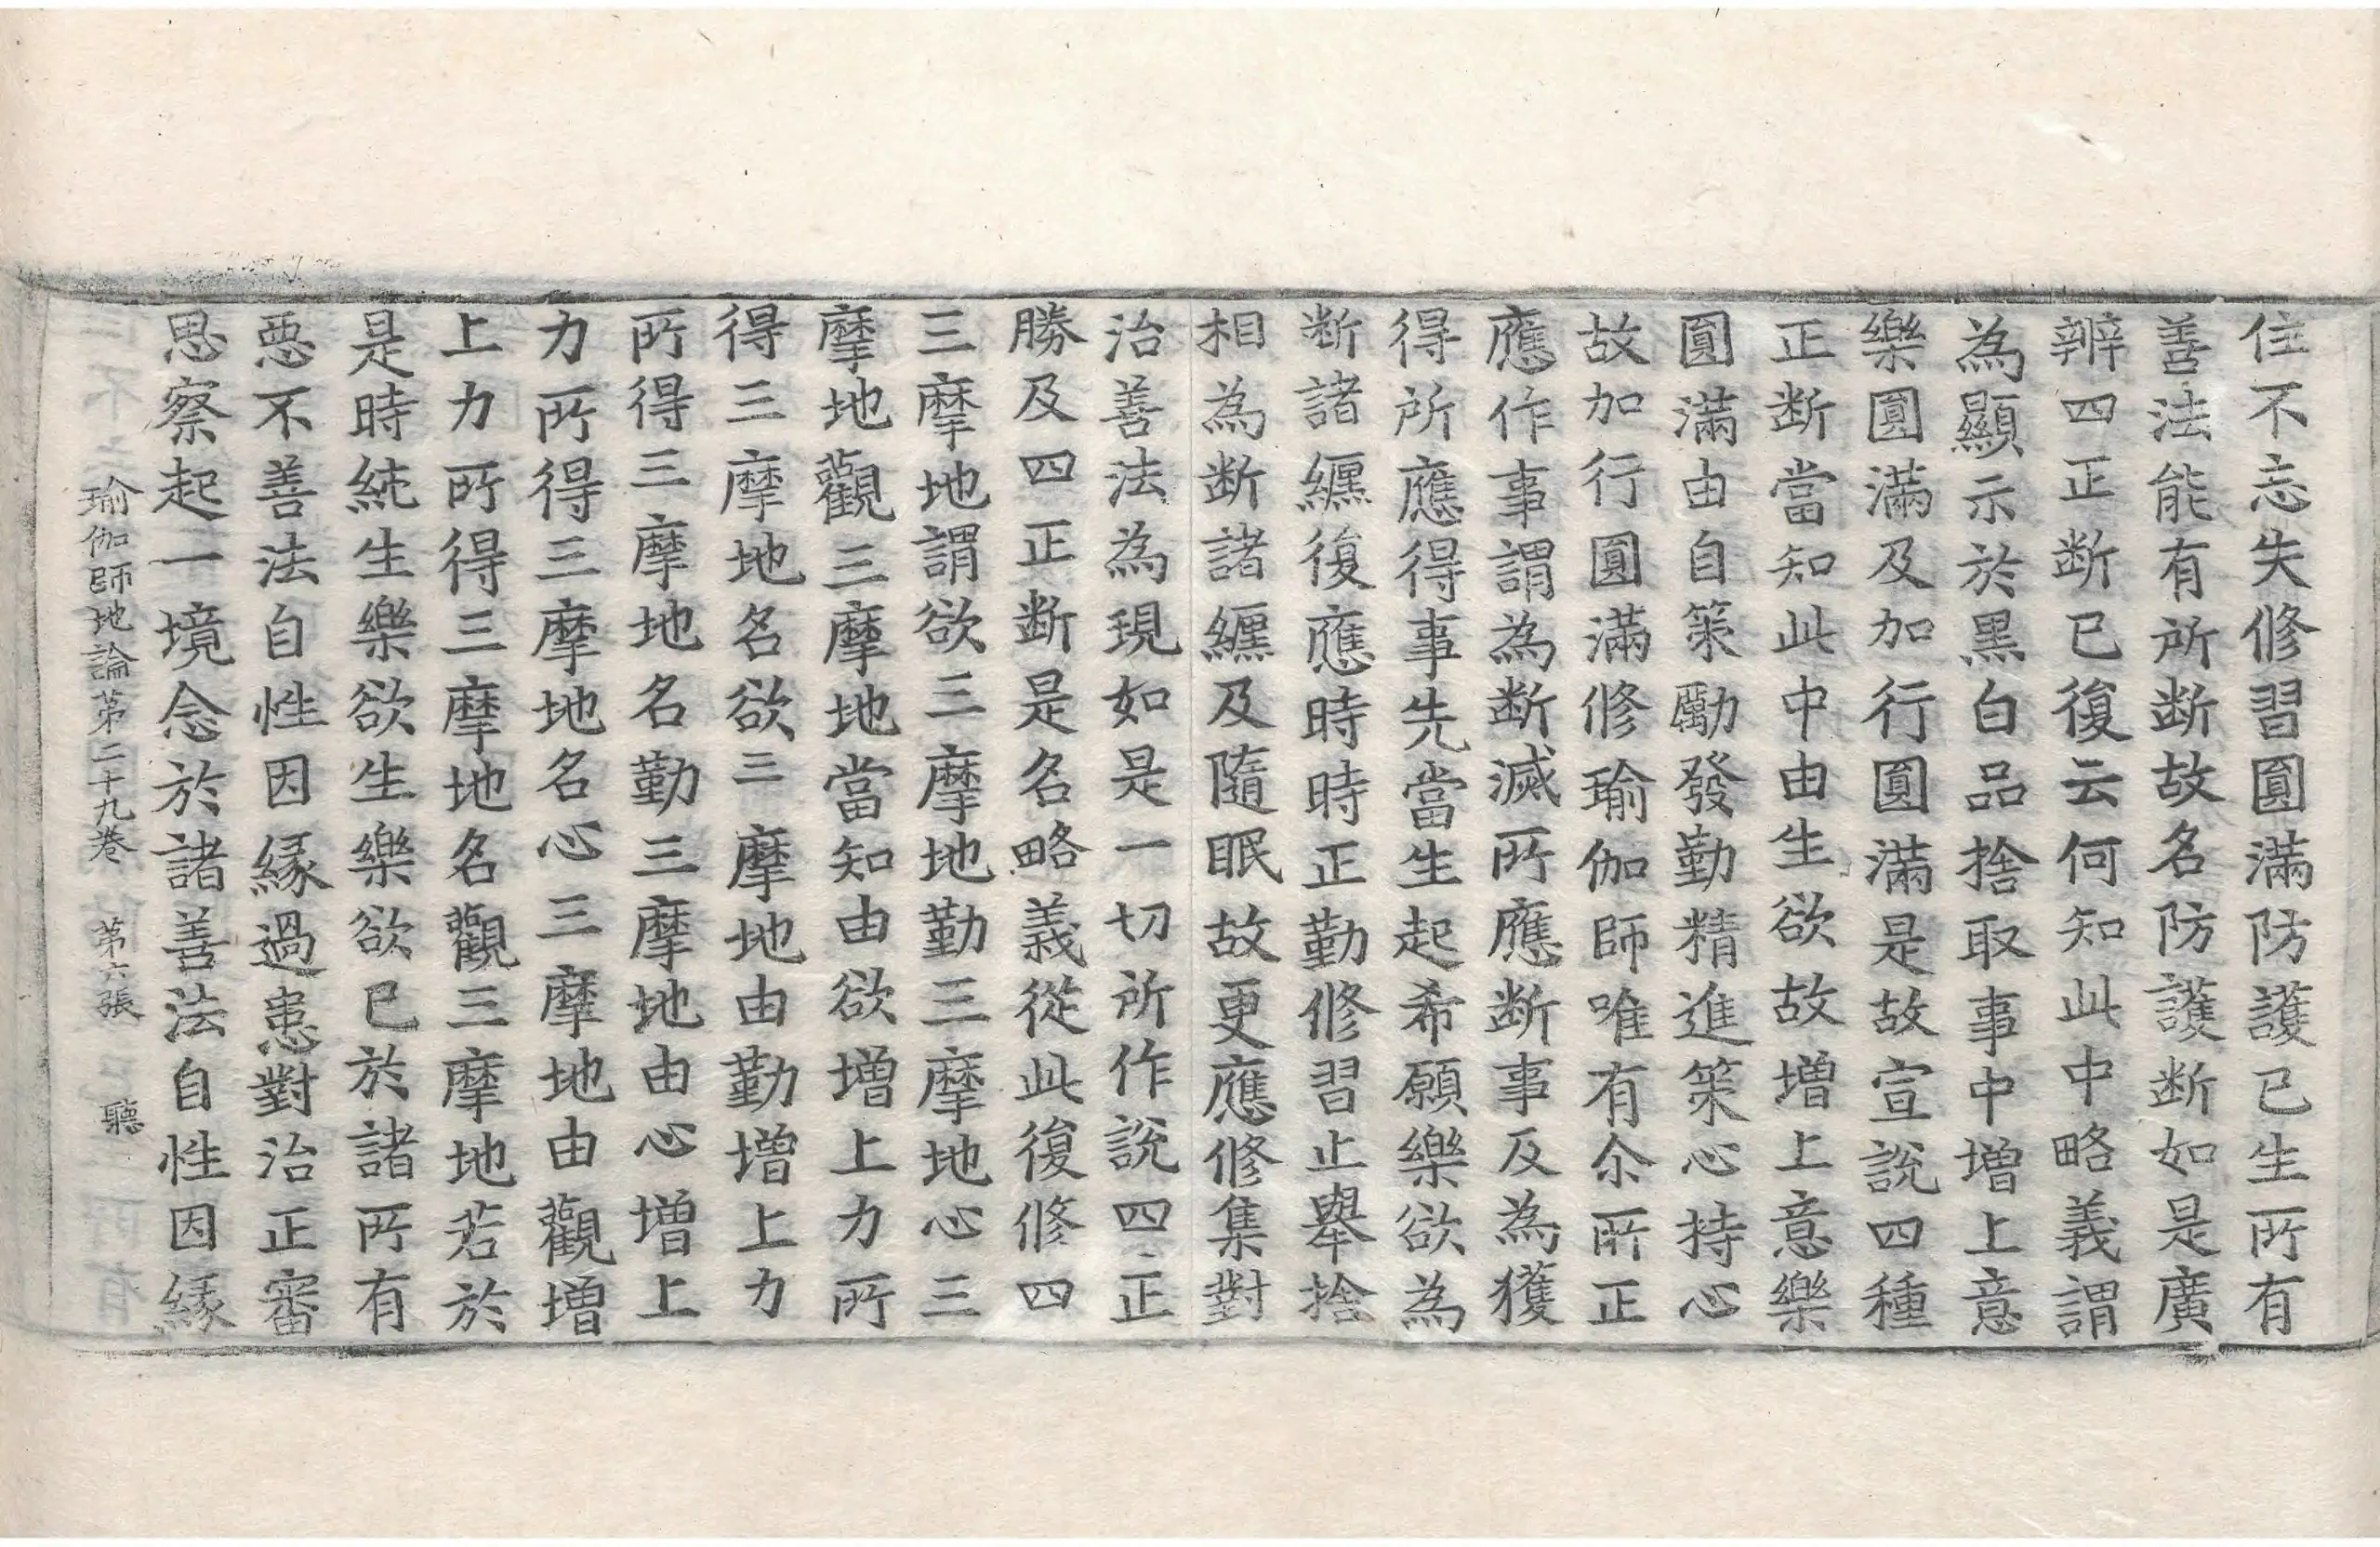 住不忘失修習圓滿防護已生所有
善法能有所断故名防護断如是廣
辨四正断已復云何知此中略義謂
為顯示於黒白品捨取事中增上意
樂圓滿及加行圓滿是故宣說四種
正断當知此中由生欲故增上意樂
圓滿由自策勵發勤精進策心持心
故加行圓滿修瑜伽師唯有尒所正
應作事謂為断滅所應断事及為獲
得所應得事先當生起希願樂欲為
断諸纏復應時時正勤修習止舉捨
相為断諸纏及隨眠故更應修集對
治善法為現如是一切所作說四正
勝及四正断是名略義從此復修四
三摩地謂欲三摩地勤三摩地心三
摩地觀三摩地當知由欲增上力所
得三摩地名欲三摩地由勤增上力
所得三摩地名勤三摩地由心增上
力所得三摩地名心三摩地由觀增
上力所得三摩地名觀三摩地若於
是時純生樂欲生樂欲已於諸所有
惡不善法自性因緣過患對治正審
思察起一境念於諸善法自性因緣
瑜伽師地論第二十九卷　第六張　聽